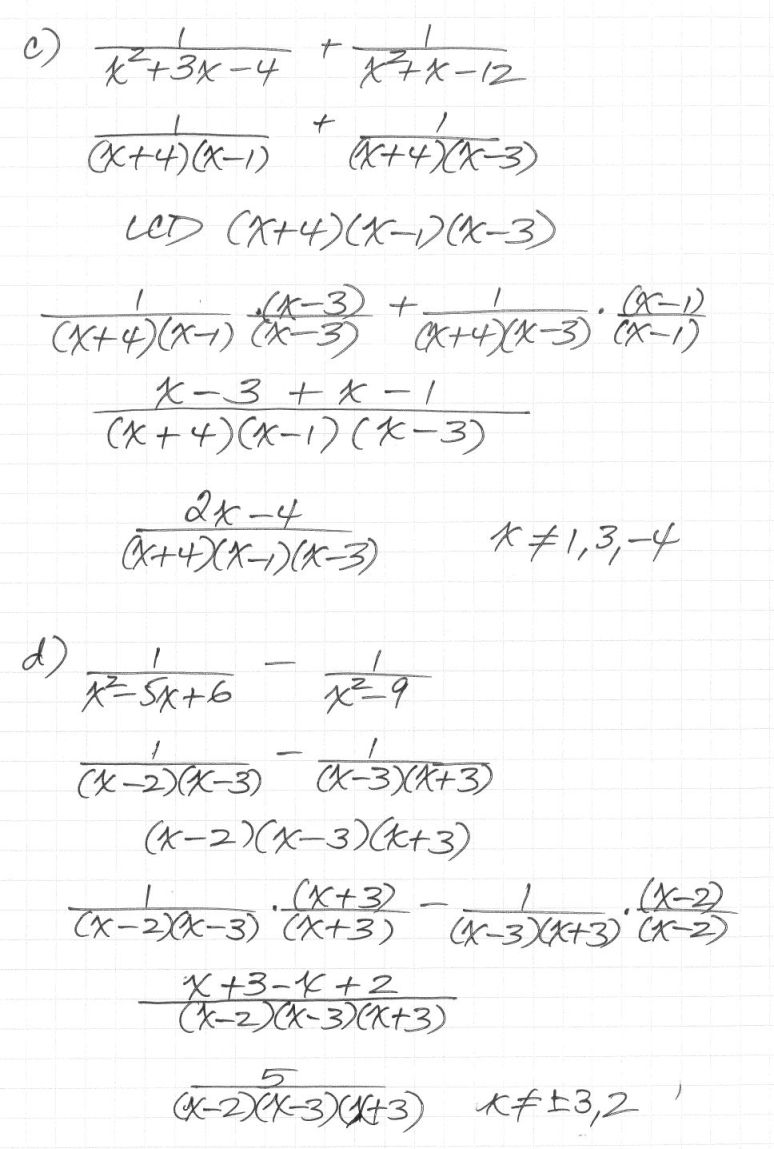 c) 1/(x²+3x-4) + 1/(x²+x-12)
1/((x+4)(x-1)) + 1/((x+4)(x-3))
LCD (x+4)(x-1)(x-3)
1/((x+4)(x-1)) · (x-3)/(x-3) + 1/((x+4)(x-3)) · (x-1)/(x-1)
(x-3+x-1)/((x+4)(x-1)(x-3))
(2x-4)/((x+4)(x-1)(x-3)) x≠1,3,-4
d) 1/(x²-5x+6) - 1/(x²-9)
1/((x-2)(x-3)) - 1/((x-3)(x+3))
(x-2)(x-3)(x+3)
1/((x-2)(x-3)) · (x+3)/(x+3) - 1/((x-3)(x+3)) · (x-2)/(x-2)
(x+3-x+2)/((x-2)(x-3)(x+3))
5/((x-2)(x-3)(x+3)) x≠±3,2